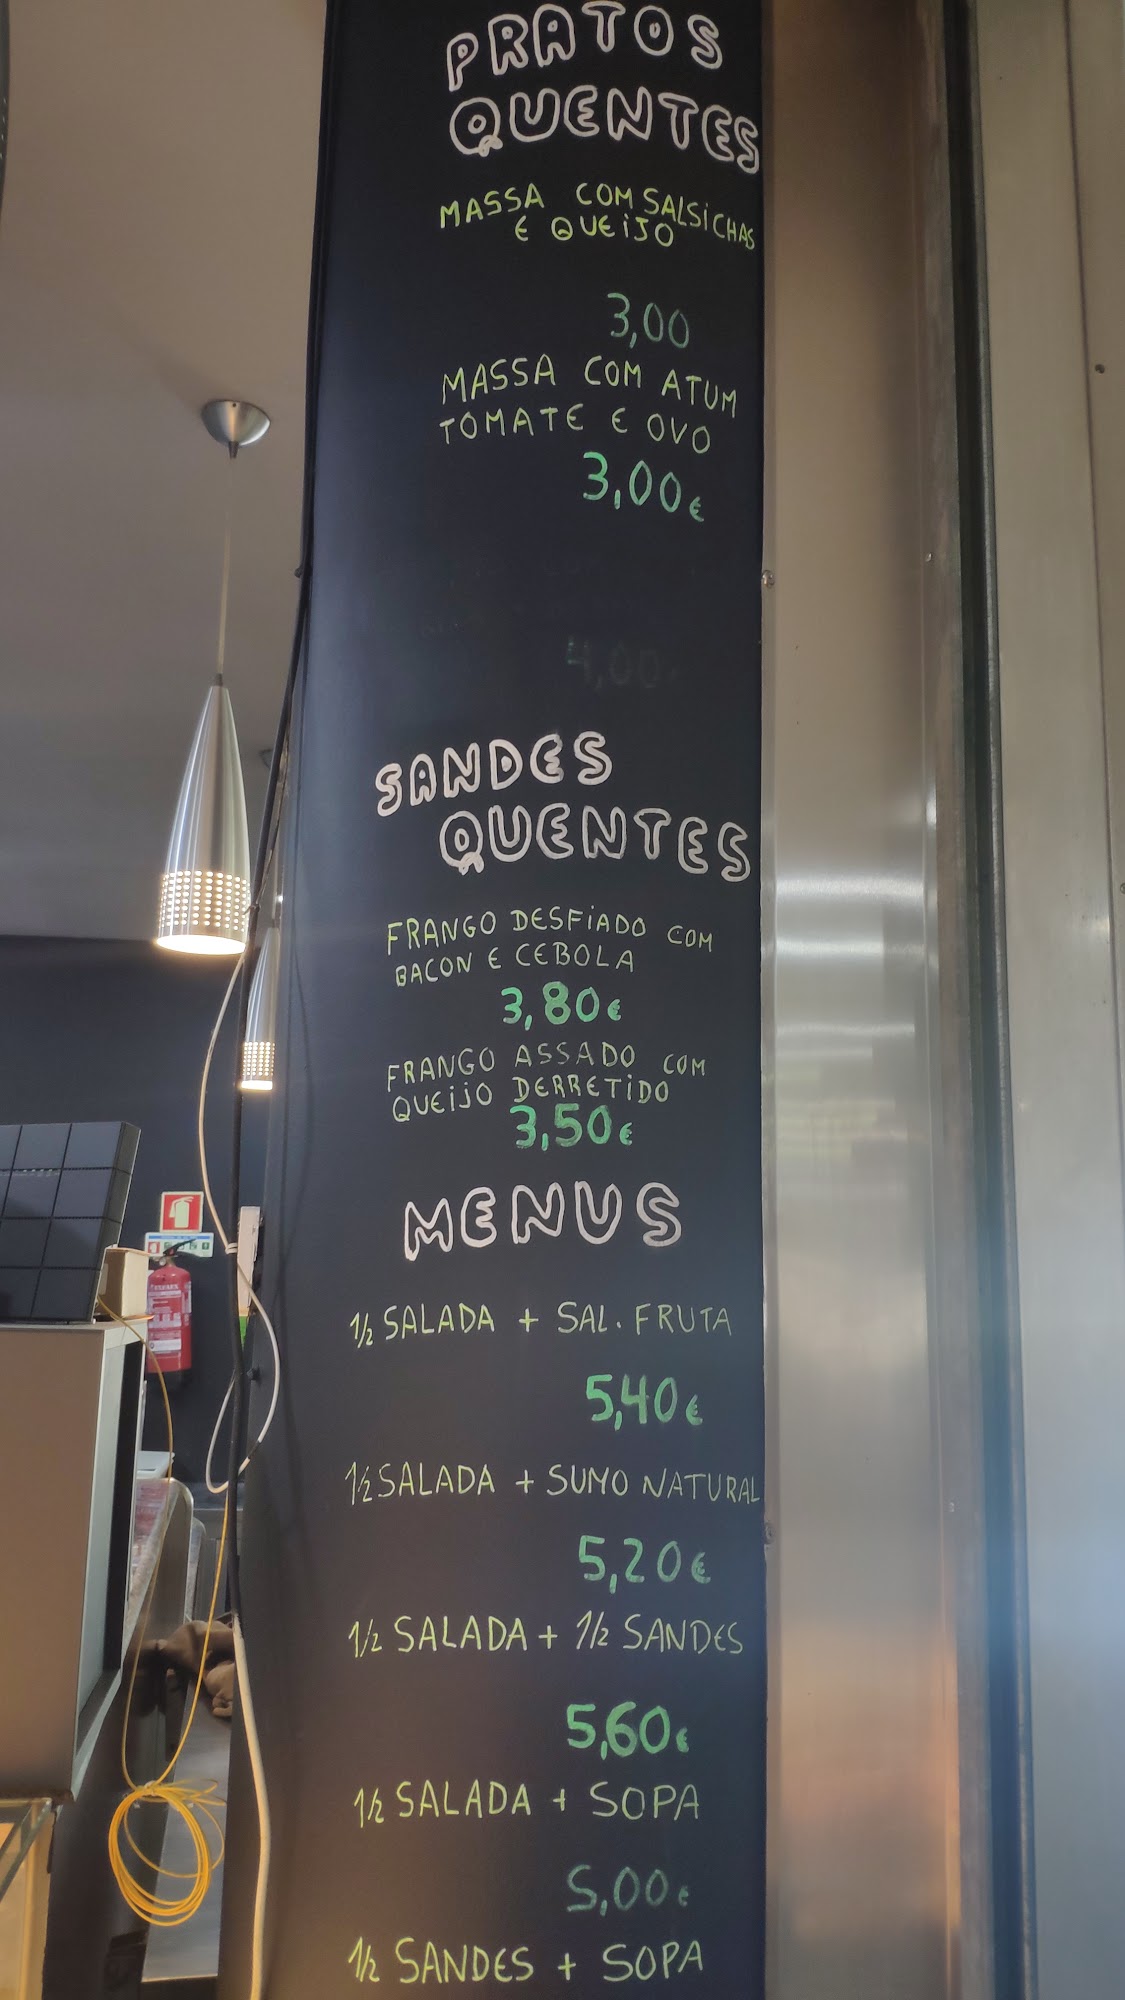 PRATOS
QUENTES
MASSA COM SALSiCHAS
E QUEiJO
3,00
MASSA COM ATUM
TOMATE E OVO
3,00€
4,00
SANDES
QUENTES
FRANGO DESFiADO COM
BACON E CEBOLA
3,80€
FRANGO ASSADO COM
QUEiJO DERRETiDO
3,50€
MENUS
1/2 SALADA + SAL. FRUTA
5,40€
1/2 SALADA + SUMO NATURAL
5,20€
1/2 SALADA + 1/2 SANDES
5,60€
1/2 SALADA + SOPA
5,00€
1/2 SANDES + SOPA